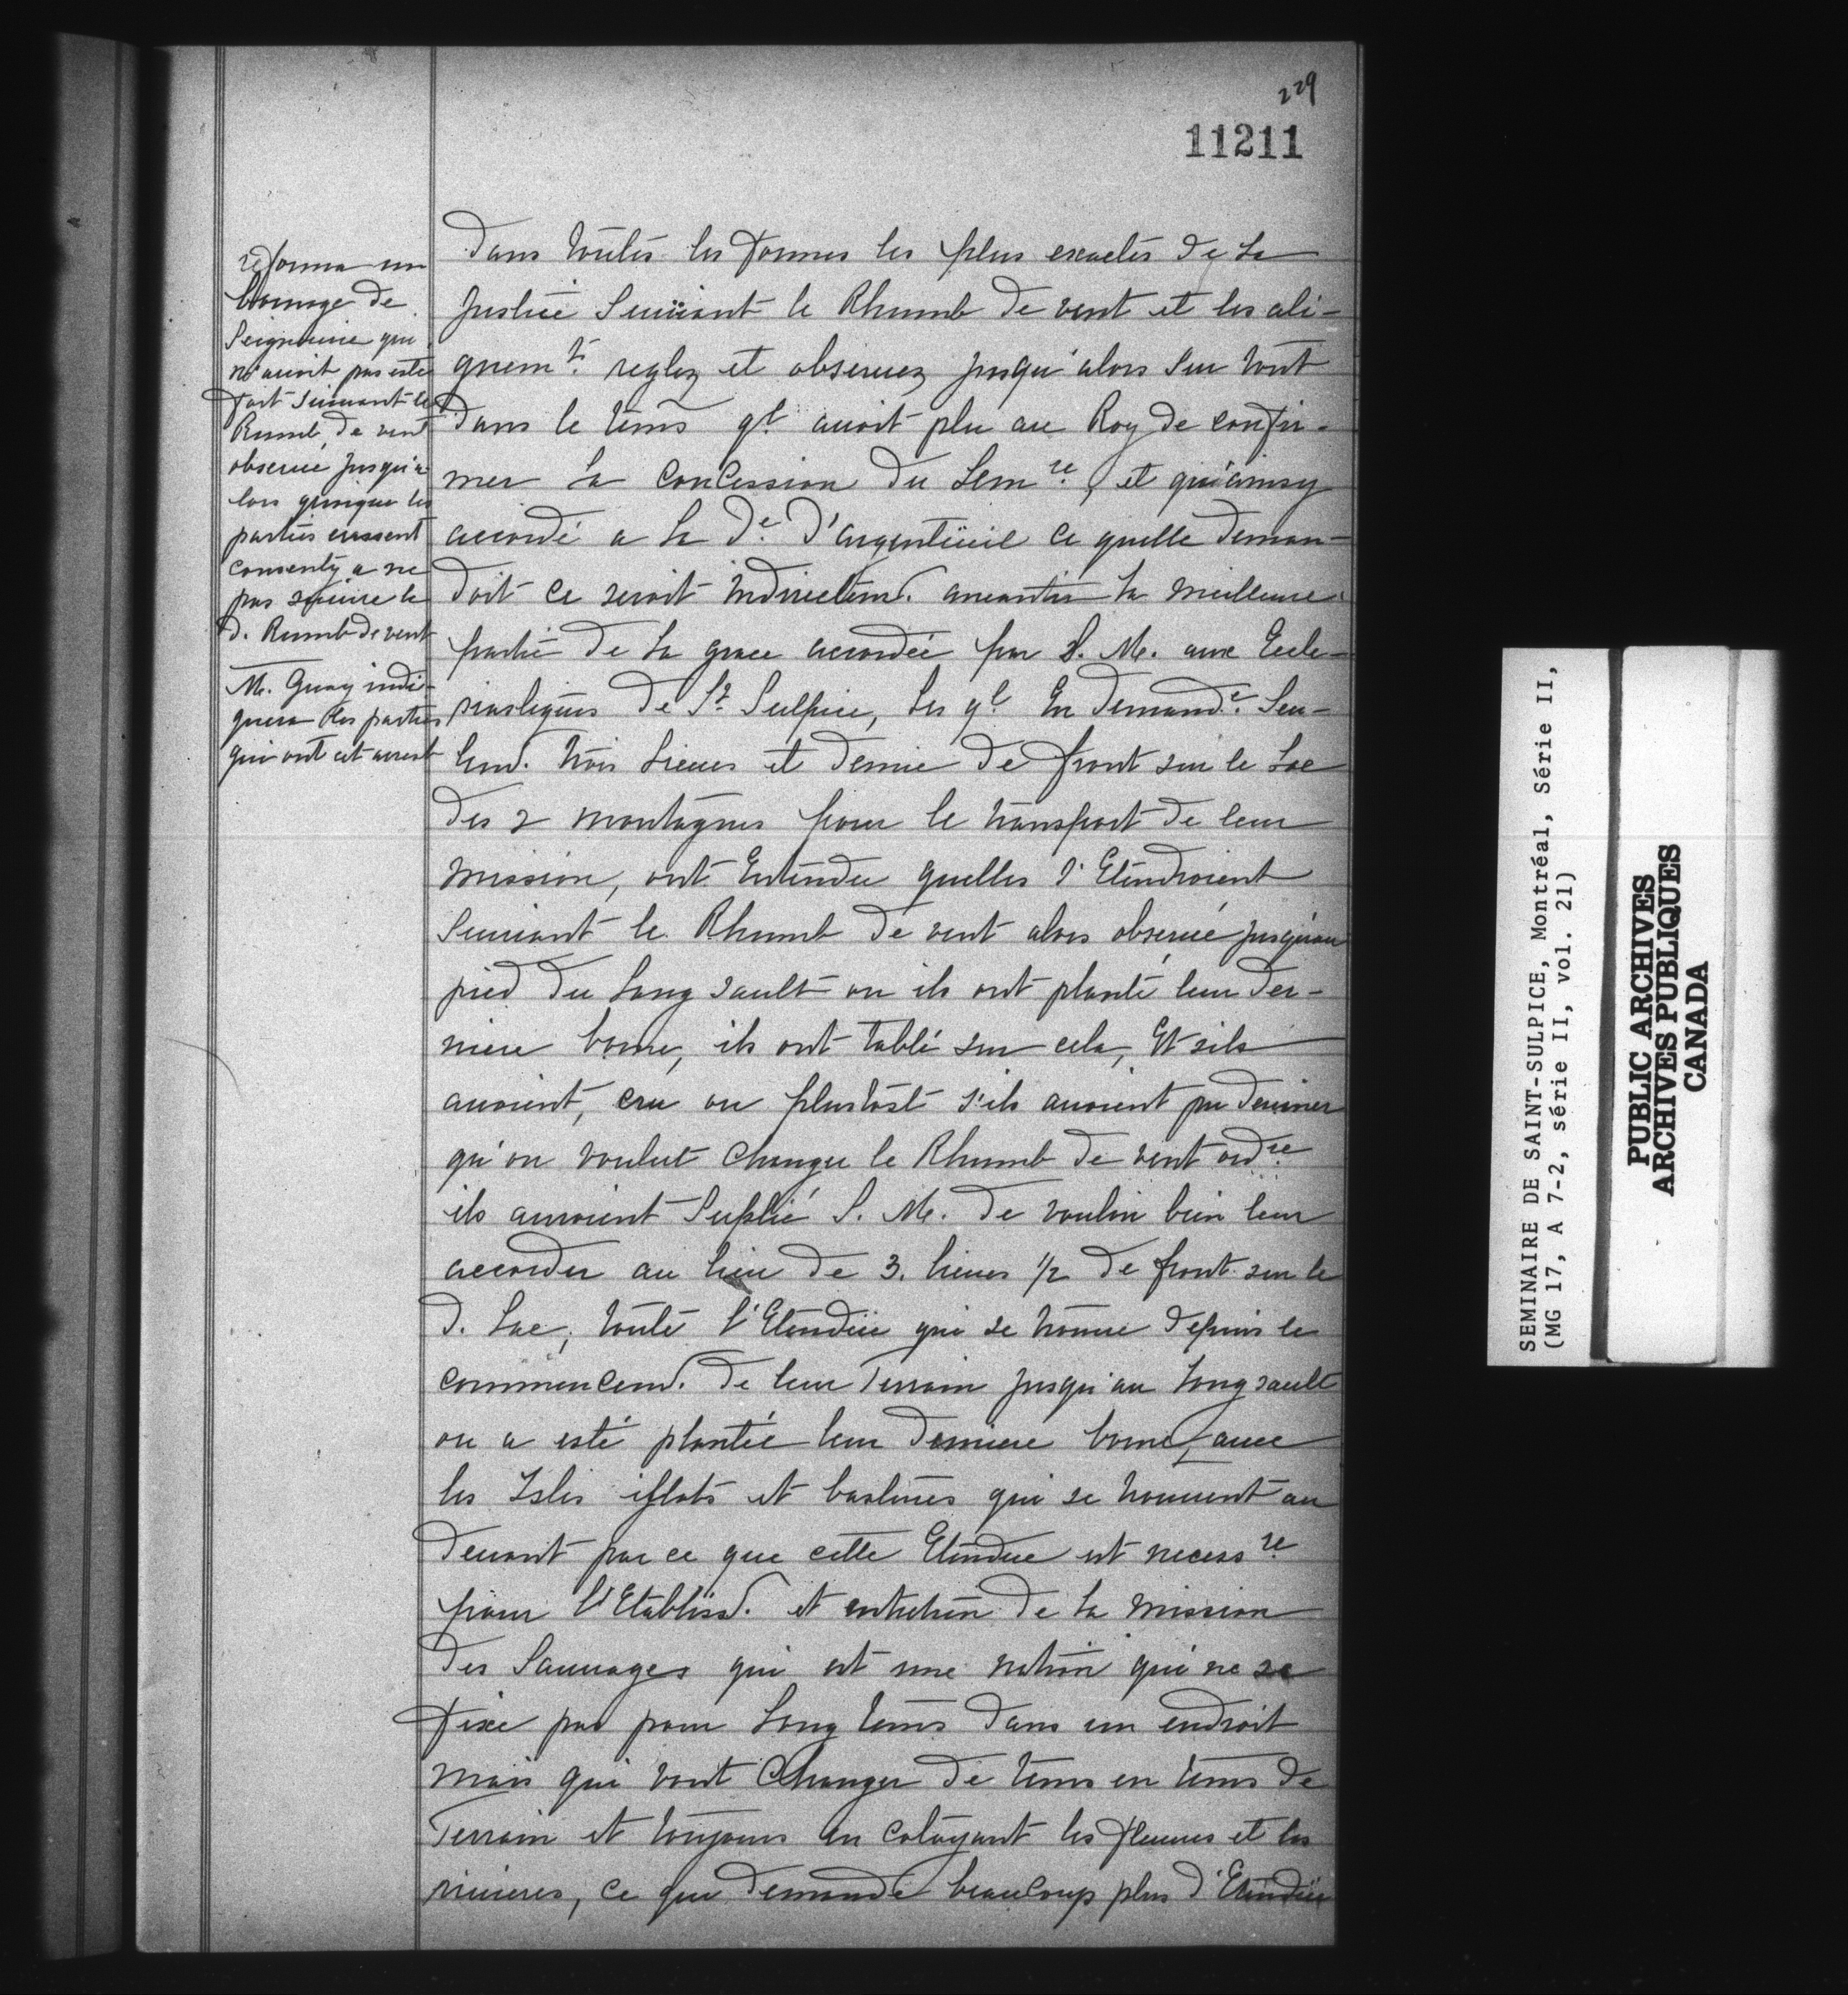 229
11211
reforma un
bornage de
Seigneurie qui
n'auoit pas esté
fait suiuant le
Rumb de vent
obserué jusqu'a
lors quoique les
parties eussent
consenty a ne
pas suiure le
d. Rumb de vent
M. Guay indi-
quera les parties
qui ont cet arrest
Dans toutes les formes les plus exactes de La
Justice Suiüant le Rhumb de vent et les ali-
gnem.ts reglez et obseruez jusqu'alors sur tout
Dans le tems q.l auoit plu au Roy de confir-
mer La Concession du Sem.re, et qu'ainsy
accordé a La D.e D'argenteüil ce quelle deman-
doit ce seroit indirectem.t aneantir La meilleure
partie de La grace accordée par S. M. aux Eccle-
siastiques De S.t Sulpice, Les q.ls En demand.t Seu-
lem.t trois Lieues et demie De front sur le Lac
des 2 montagnes pour le transport de leur
mission, ont Entendu quelles s'Etendroient
Suiuant le Rhumb de vent alors obserué jusqu'au
pied Du Long sault ou ils ont planté leur der-
niere borne, ils ont tablé sur cela, Et sils
auoient, cru ou plustost s'ils auoient pu deuiner
qu'on voulut changer le Rhumb de vent ord.re
ils auroient Suplié S. M. de vouloir bien leur
accorder au lieu de 3. lieues 1/2 de front sur le
d. Lac, toute l'Etendüe qui se trouue depuis le
commencem.t de leur Terrain jusqu'au Long sault
ou a esté plantée leur derniere borne, auec
les Isles islots et bastures qui se trouuent au
deuant par ce que cette Etendue est necess.re
pour l'Etabliss.t et entretien de La mission
des Sauuages qui est une nation qui ne se
fixe pas pour Long tems dans un endroit
mais qui vont Changer de tems en tems de
Terrain et toujours en cotoyant les fleuues et les
riuieres, ce qui demande beaucoup plus d'Etendüe
SEMINAIRE DE SAINT-SULPICE, Montréal, Série II,
(MG 17, A 7-2, série II, vol. 21)
PUBLIC ARCHIVES
ARCHIVES PUBLIQUES
CANADA